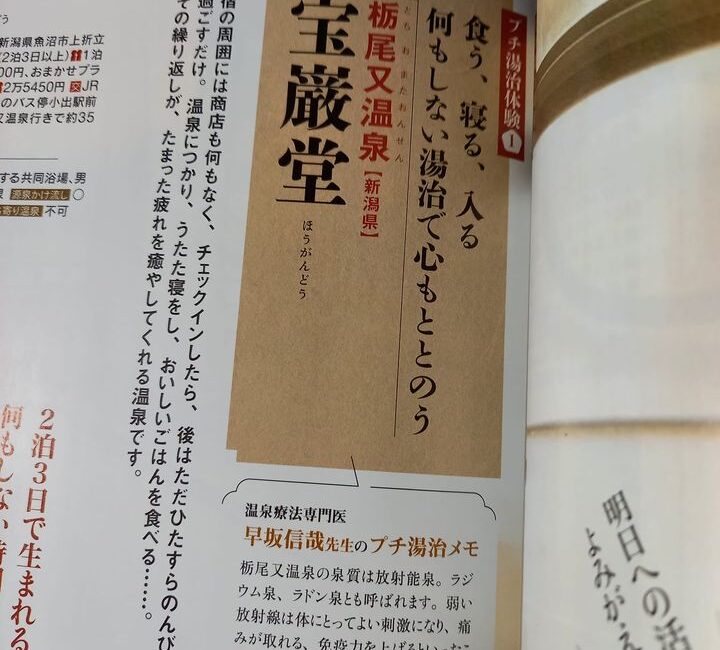 プチ湯治体験❶
食う、寝る、入る
何もしない湯治で心もととのう
とちおまたおんせん
栃尾又温泉【新潟県】
宝巌堂
ほうがんどう
宿の周囲には商店も何もなく、チェックインしたら、後はただひたすらのんび
過ごすだけ。温泉につかり、うたた寝をし、おいしいごはんを食べる……。
ての繰り返しが、たまった疲れを癒やしてくれる温泉です。
温泉療法専門医
早坂信哉先生のプチ湯治メモ
栃尾又温泉の泉質は放射能泉。ラジ
ウム泉、ラドン泉とも呼ばれます。弱い
放射線は体にとってよい刺激になり、痛
みが取れる、免疫力を上げるといった
新潟県魚沼市上折立
(2泊3日以上)1泊
00円、おまかせプラ
2万5450円 交JR
のバス停小出駅前
又温泉行きで約35
する共同浴場、男
泉 源泉かけ流し ○
寄り温泉 不可
2泊3日で生まれる
何もしない時間
明日への活
よみがえ